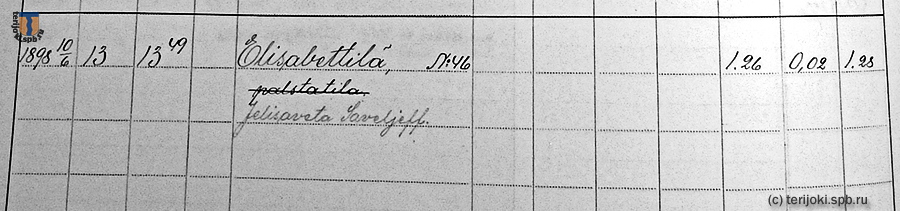 terijoki.spb.ru
1898 10/6 13 13 49 Elisabettilä, N:46 1.26 0,02 1.28
palstatila,
Jelisaveta Saveljeff.
(c) terijoki.spb.ru